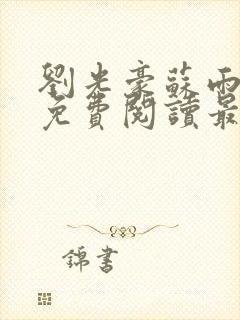 劉光豪蘇雨
免費閱讀最
錦書